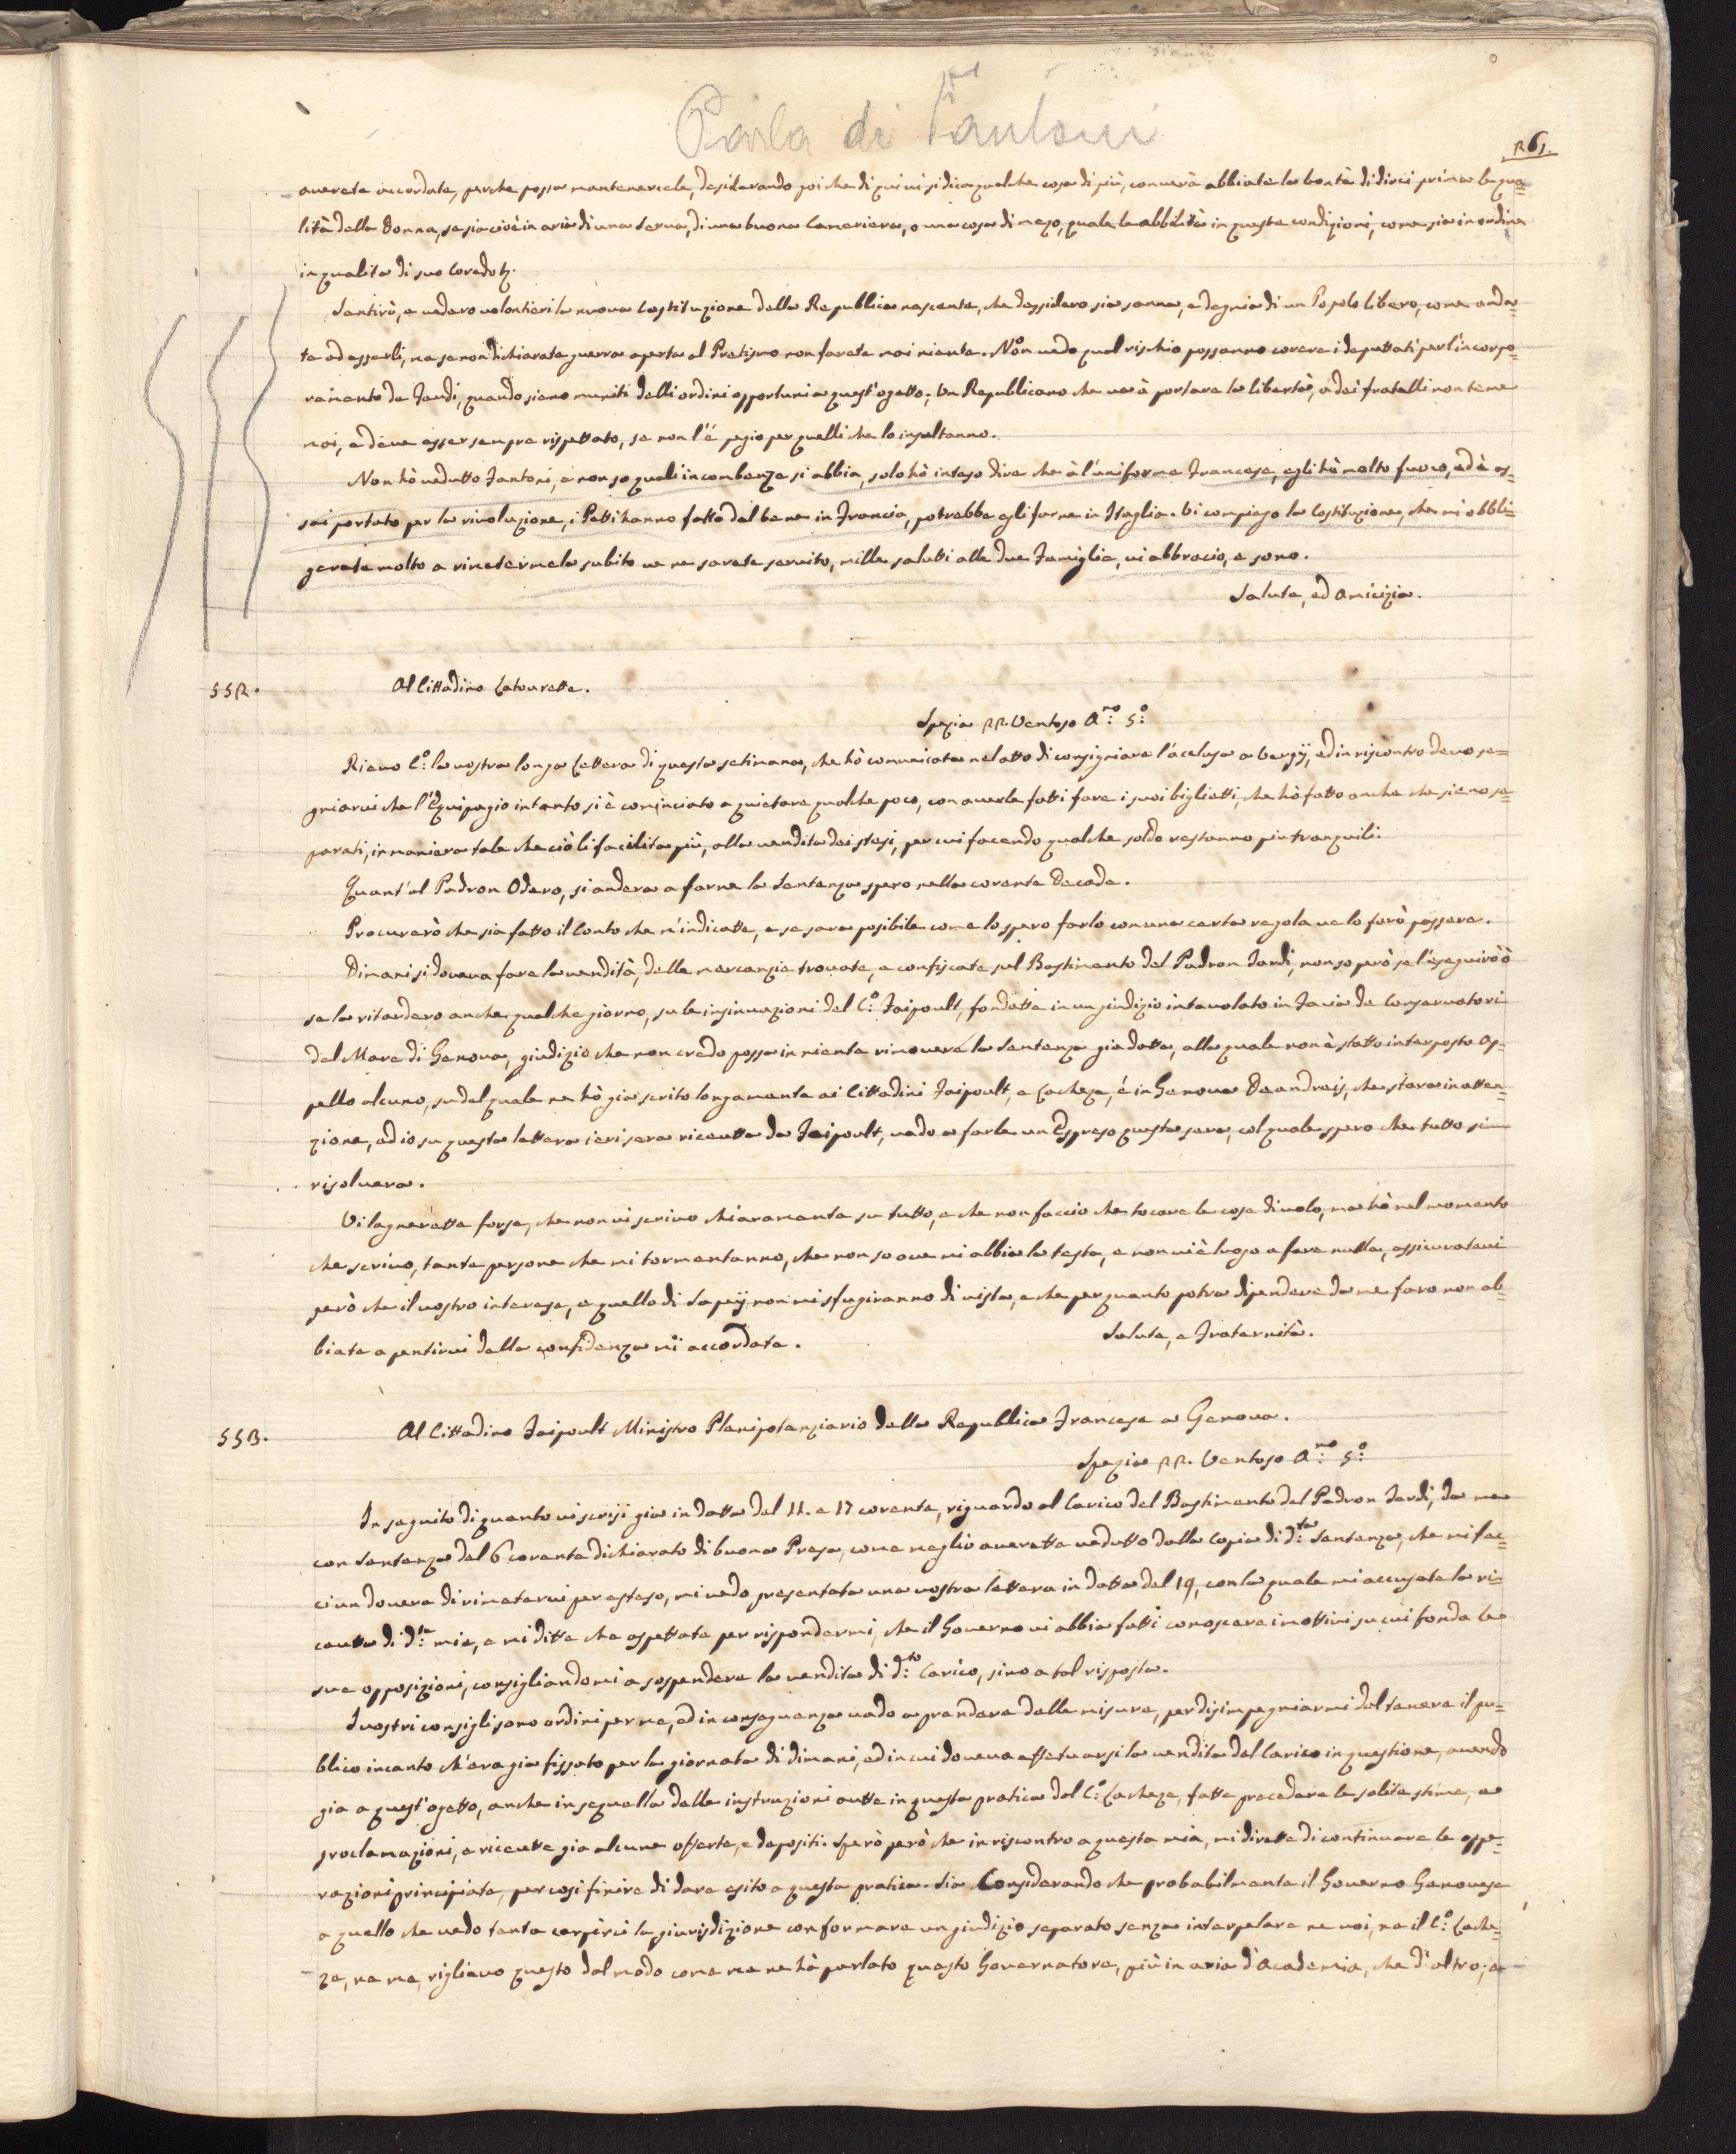 Parla di Fantoni
261.
averete accordate, perche possa mantenercela, desiderando poi che di qui vi si dica qualche cosa di più, converà abbiate la bontà di dirci prima le qua=
lità della Donna, se sia cioè in aria di una serva, di una buona Cameriera, o una cosa di mezo, quale le abbilità in queste condizioni, come sia in ordine
in qualita di suo Coredo &.
Sentirò, e vedero volontieri la nuova Costituzione della Republica nascente, che dessidero sia sanna, e degnia di un Popolo libero, come anda=
te ad esserli, ma se non dichiarate guerra aperta al Pretismo non farete mai niente. Non vedo qual rischio possanno corere i deputtati per l'incorpo=
ramento de Feudi, quando sieno muniti delli ordini opportuni a quest'ogetto; Un Republicano che và à portare la libertà, a dei fratelli non teme
mai, e deve esser sempre rispettato, se non l'é pegio per quelli che lo insultanno.
Non hò vedutto Fantoni, e non so quali incombenze si abbia, solo hò inteso dire che à l'uniforme Francese, egli hà molto fuoco, ed è as=
sai portato per la rivoluzione, i Petti hanno fatto del bene in Francia, potrebbe egli farne in Itaglia. Vi compiego la Costituzione, che mi obbli=
gerete molto a rimetermela subito ve ne sarete servito, mille salutti alle due Famiglie, vi abbracio, e sono.
Salute, ed Amicizia.
552.
Al Cittadino Latourette.
Spezia 22. Ventoso A:no 5:o
Ricevo C:o la vostra longa Lettera di questa setimana, che hò comunicata nel atto di consigniare l'aclusa a Vergÿ, ed in riscontro devo se=
gniarvi che l'Equipagio intanto si è cominciato a quietare qualche poco, con averle fatti fare i suoi biglietti, che hò fatto anche che sieno se=
parati, in maniera tale che ciò li facilita più, alla vendita dei stesi, per cui facendo qualche soldo restanno piu tranquili.
Quant'al Padron Odero, si andera a farne la Sentenza spero nella corente Decade.
Procurerò che sia fatto il Conto che m'indicatte, e se sara posibile come lo spero farlo con una certa regola ve lo farò passare.
Dimani si doveva fare la vendità, delle mercanzie trovate, e confiscate sul Bastimento del Padron Jardi, non so però se l'eseguirò ò
se la ritardero anche qualche giorno, su le insinuazioni del C:o Faipoult, fondatte in un giudizio intavolato in Favia de Conservatori
del Mare di Genova, giudizio che non credo possa in niente rimovere la Sentenza gia datta, alla quale non è statto interposto Ap=
pello alcuno, su del quale ne hò gia scrito longamente ai Cittadini Faipoult, e Lacheze, é in Genova Deandreis, che stara in atten=
zione, ed io su questa lettera ieri sera riceutta da Faipoult, vado a farle un Espreso questa sera, col quale spero che tutto si
risolvera.
Vi lagnerette forse, che non vi scrivo chiaramente su tutto, e che non faccio che tocare le cose di volo, ma hò nel momento
che scrivo, tante persone che mi tormentanno, che non so ove mi abbia la testa, e non vi è luogo a fare nulla, assicuratevi
però che il vostro interese, e quello di Sapeÿ non mi sfugiranno di vista, e che per quanto potra dipendere da me faro non ab=
biate a pentirvi della confidenza mi accordate.
Salute, e Fraternità.
553.
Al Cittadino Faipoult Ministro Plenipotenziario della Republica Francese a Genova.
Spezia 22. Ventoso A:no 5:o
In seguito di quanto vi scrisi gia in datta del 11. e 17 corente, riguardo al Carico del Bastimento del Padron Jardi, da me
con Sentenza del 6 corente dichiarato di buona Presa, come meglio averette vedutto dalla Copia di d:ta Sentenza, che mi fec=
ci un dovere di rimetervi per esteso, mi vedo presentata una vostra lettera in datta del 19, con la quale mi accusate la ri=
ceutta di d:ta mia, e mi ditte che aspettate per rispondermi, che il Governo vi abbia fatti conoscere i mottivi su cui fonda le
sue opposizioni, consigliandomi a sospendere la vendita di d:to Carico, sino a tal risposta.
I vostri consigli sono ordini per me, ed in conseguenza vado a prendere delle misure, per disimpegniarmi dal tenere il pu=
blico incanto ch'era gia fissato per la giornata di dimani, ed in cui doveva effetuarsi la vendita del Carico in questione, avendo
gia a quest'ogetto, anche in sequella delle instruzioni autte in questa pratica dal C:o Lacheze, fatte procedere le solite stime, e
proclamazioni, e riceutte gia alcune offerte, e depositi. Sperò però che in riscontro a questa mia, mi dirette di continuare le oppe=
razioni principiate, per cosi finire di dare esito a questa pratica. Sia Considerando che probabilmente il Governo Genovese
a quello che vedo tenta carpirci la giurisdizione con formare un giudizio separato senza interpelare ne voi, ne il C:o Lache=
ze, ne me, riglievo questo dal modo come me ne hà parlato questo Governatore, più in aria d'Academia, che d'altro; e